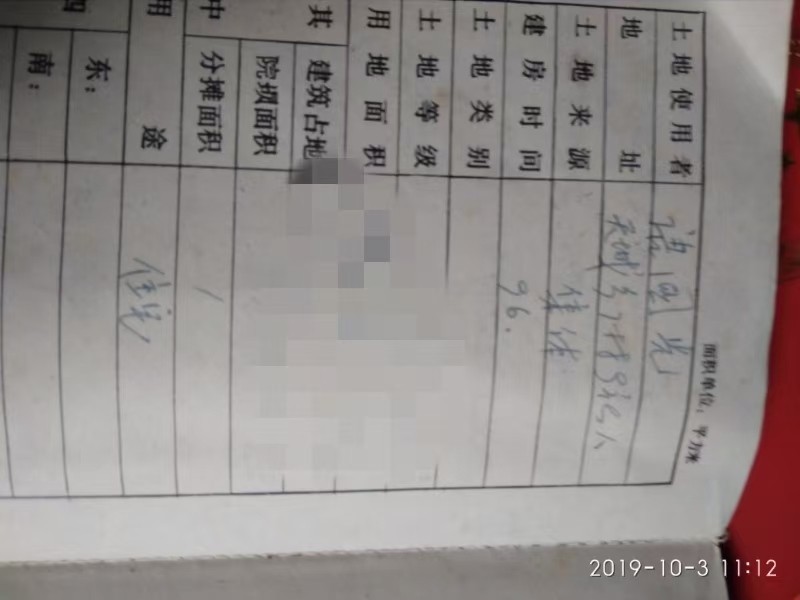 面积单位：平方米
土地使用者
地址
土地来源 集体
建房时间 96.
土地类别
土地等级
用地面积
其中
建筑占地
院坝面积
分摊面积 /
用途 住宅
四
东：
南：
2019-10-3 11:12